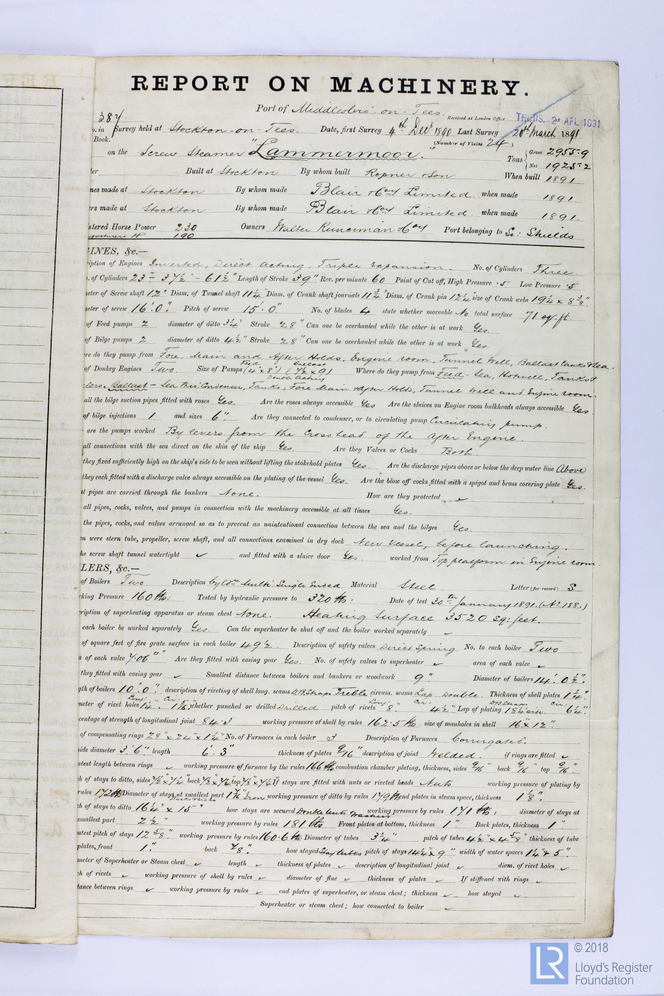 REPORT ON MACHINERY.
Port of Middlesbro' on Tees
Received at London Office THURS. 2 APL 1891
387
in Survey held at Stockton-on-Tees. Date, first Survey 4th Dec 1890 Last Survey 20th March 1891
Book. (Number of Visits 24)
on the Screw Steamer "Lammermoor" Tons Gross 2955.9 Net 1925.2
Built at Stockton By whom built Ropner & Son When built 1891
made at Stockton By whom made Blair & Coy Limited when made 1891
made at Stockton By whom made Blair & Coy Limited when made 1891
Horse Power 230 Owners Walter Runciman & Coy Port belonging to So. Shields
190
INES, &c.—
of Engines Inverted, Direct acting, Triple Expansion. No. of Cylinders Three
of Cylinders 23" 37½" 61½" Length of Stroke 39" Rev. per minute 60 Point of Cut off, High Pressure .5 Low Pressure .5
of Screw shaft 12" Diam. of Tunnel shaft 11¼" Diam. of Crank shaft journals 11¾" Diam. of Crank pin 12¼" size of Crank webs
of screw 16'.0" Pitch of screw 15'.0" No. of blades 4 state whether moveable No total surface 71 sq. ft.
of Feed pumps 2 diameter of ditto 3¼" Stroke 28" Can one be overhauled while the other is at work Yes
of Bilge pumps 2 diameter of ditto 4½" Stroke 28" Can one be overhauled while the other is at work Yes
do they pump from Fore, Main and After Holds, Engine room, Tunnel Well, Ballast tanks & Sea.
of Donkey Engines Two Size of Pumps Where do they pump from Feed - Sea, Hotwell, Tanks &
Ballast - Sea, Condenser, Tanks, Fore Main After Hold, Tunnel Well and Engine room.
all the bilge suction pipes fitted with roses Yes. Are the roses always accessible Yes Are the sluices on Engine room bulkheads always accessible Yes
of bilge injections 1 and sizes 6" Are they connected to condenser, or to circulating pump Circulating pump.
are the pumps worked By levers from the Crosshead of the After Engine
all connections with the sea direct on the skin of the ship Yes. Are they Valves or Cocks Both
they fixed sufficiently high on the ship's side to be seen without lifting the stokehold plates Yes. Are the discharge pipes above or below the deep water line Above
they each fitted with a discharge valve always accessible on the plating of the vessel Yes. Are the blow off cocks fitted with a spigot and brass covering plate Yes.
pipes are carried through the bunkers None. How are they protected ✓
all pipes, cocks, valves, and pumps in connection with the machinery accessible at all times Yes.
the pipes, cocks, and valves arranged so as to prevent an unintentional connection between the sea and the bilges Yes.
were stern tube, propeller, screw shaft, and all connections examined in dry dock New Vessel, before launching.
screw shaft tunnel watertight ✓ and fitted with a sluice door Yes. worked from Top platform in Engine room
LERS, &c.—
of Boilers Two Description Cyldr. Multi. Single Ended Material Steel Letter (for record) S
Pressure 160 lbs: Tested by hydraulic pressure to 320 lbs: Date of test 30th January 1891. (No 188.)
of superheating apparatus or steam chest None. Heating Surface 3520 sq: feet.
each boiler be worked separately Yes Can the superheater be shut off and the boiler worked separately ✓
of square feet of fire grate surface in each boiler 49½. Description of safety valves Direct Spring No. to each boiler Two
of each valve 7.06" Are they fitted with easing gear Yes. No. of safety valves to superheater ✓ area of each valve ✓
they fitted with easing gear ✓ Smallest distance between boilers and bunkers or woodwork 9" Diameter of boilers 14'. 0½"
of boilers 10'.0" description of riveting of shell long. seams Treble circum. seams Lap double Thickness of shell plates
of rivet holes whether punched or drilled Drilled pitch of rivets 8" 4½" Lap of plating
of longitudinal joint 84.3 working pressure of shell by rules 162.5 lbs. size of manholes in shell 16" x 12"
of compensating rings No. of Furnaces in each boiler 3 Description of Furnaces Corrugated.
diameter 3'. 6" length 6'. 3" thickness of plates 9/16" description of joint Welded. if rings are fitted ✓
length between rings ✓ working pressure of furnace by the rules 166 lbs combustion chamber plating, thickness, sides 9/16" back 9/16" top 9/16"
of stays to ditto, sides back top If stays are fitted with nuts or riveted heads Nuts working pressure of plating by
rules 172 lbs Diameter of stays at smallest part working pressure of ditto by rules 179 lbs end plates in steam space, thickness
of stays to ditto 16½" x 15" how are stays secured Double nuts & washers working pressure by rules 171 lbs: diameter of stays at
smallest part 2½" working pressure by rules 181 lbs Front plates at bottom, thickness 1" Back plates, thickness 1"
pitch of stays working pressure by rules 160.6 lbs Diameter of tubes 3¼" pitch of tubes thickness of tube
plates, front 1" back how stayed Stay tubes pitch of stays width of water spaces
of Superheater or Steam chest ✓ length ✓ thickness of plates ✓ description of longitudinal joint ✓ diam. of rivet holes ✓
of rivets ✓ working pressure of shell by rules ✓ diameter of flue ✓ thickness of plates ✓ If stiffened with rings ✓
distance between rings ✓ working pressure by rules ✓ end plates of superheater, or steam chest; thickness ✓ how stayed ✓
Superheater or steam chest; how connected to boiler ✓
LR
© 2018
Lloyd's Register
Foundation